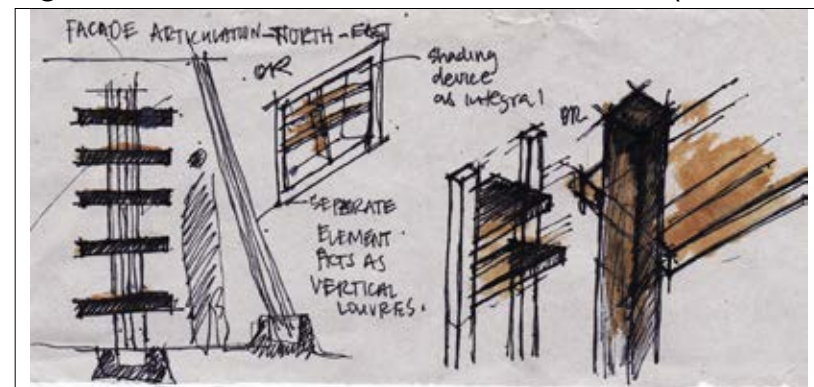 FACADE ARTICULATION-NORTH-EAST
OR
shading
device
as integral
OR
SEPERATE
ELEMENT
ACTS AS
VERTICAL
LOUVRES.